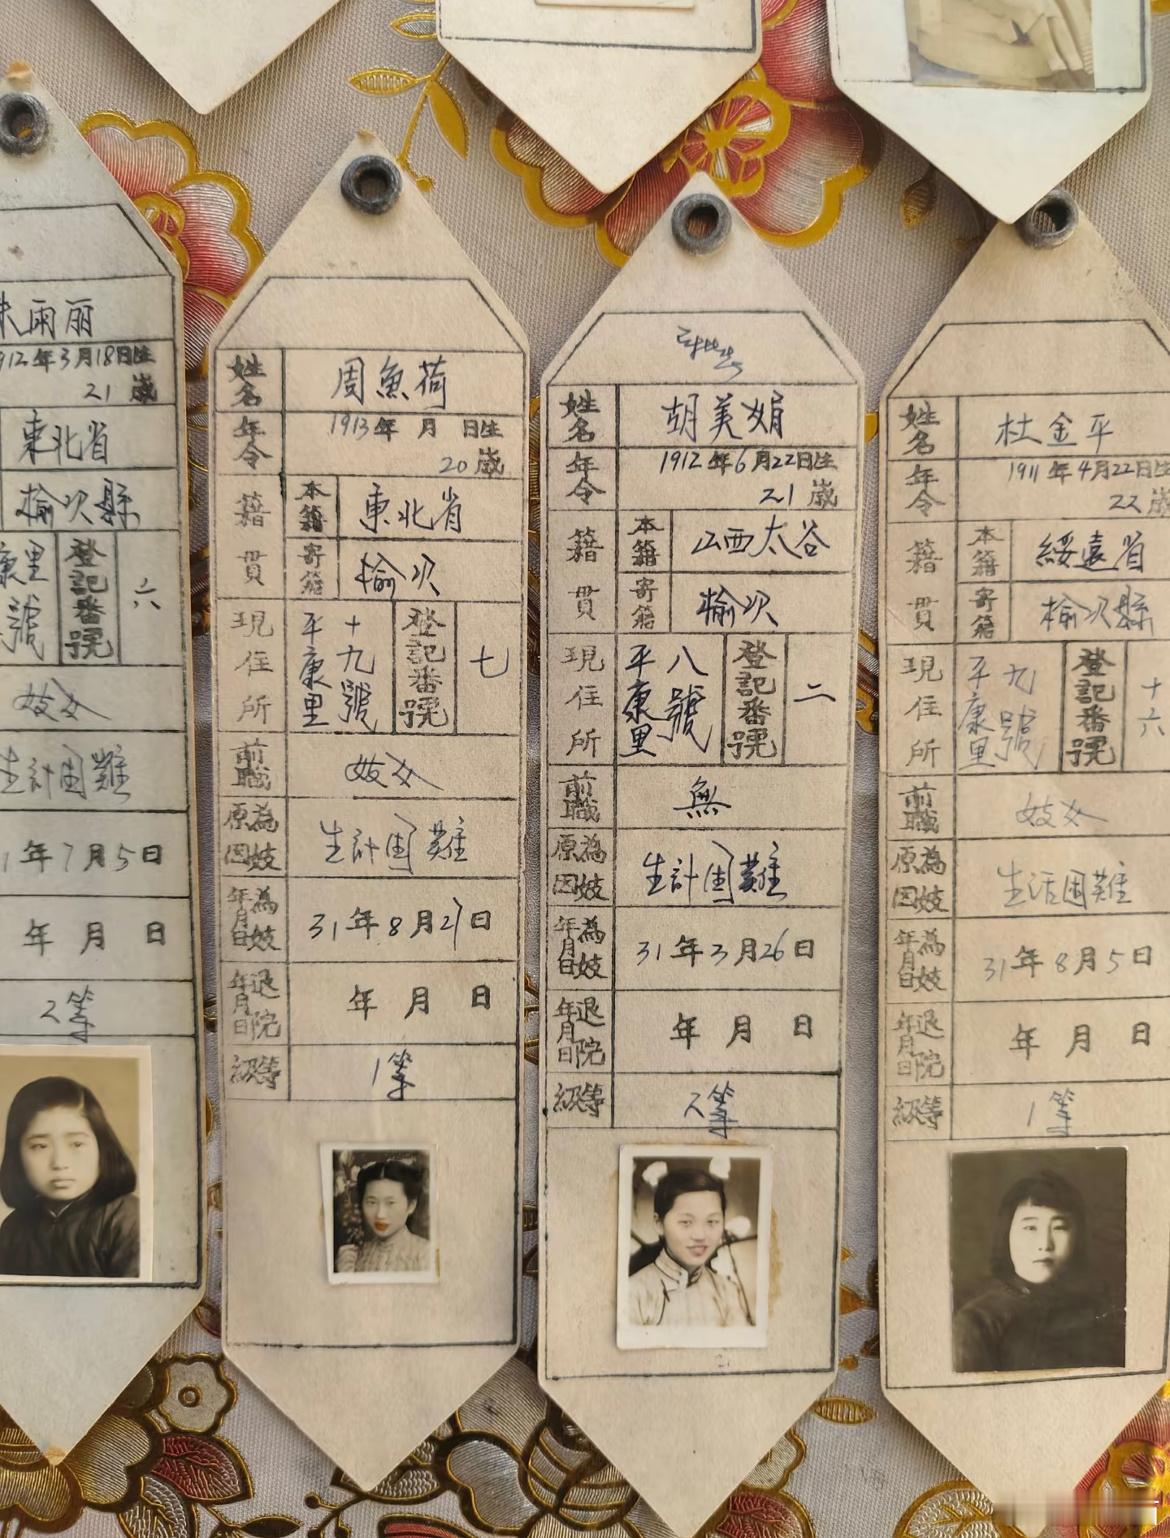 雨丽
912年3月18日生
21歳
東北省
榆次縣
康里
號
登記番號
六
妓女
生計困難
1年7月5日
年 月 日
2等
姓名
周魚荷
年令
1913年 月 日生
20歳
籍貫
本籍
東北省
寄籍
榆次
現住所
平康里
十九號
登記番號
七
前職
妓女
為妓原因
生計困難
為妓年月日
31年8月27日
退院年月日
年 月 日
等級
1等
姓名
胡美娟
年令
1912年6月22日生
21歳
籍貫
本籍
山西太谷
寄籍
榆次
現住所
平康里
八號
登記番號
二
前職
無
為妓原因
生計困難
為妓年月日
31年3月26日
退院年月日
年 月 日
等級
2等
姓名
杜金平
年令
1911年4月22日生
22歳
籍貫
本籍
綏遠省
寄籍
榆次縣
現住所
平康里
九號
登記番號
十六
前職
妓女
為妓原因
生活困難
為妓年月日
31年8月5日
退院年月日
年 月 日
等級
1等